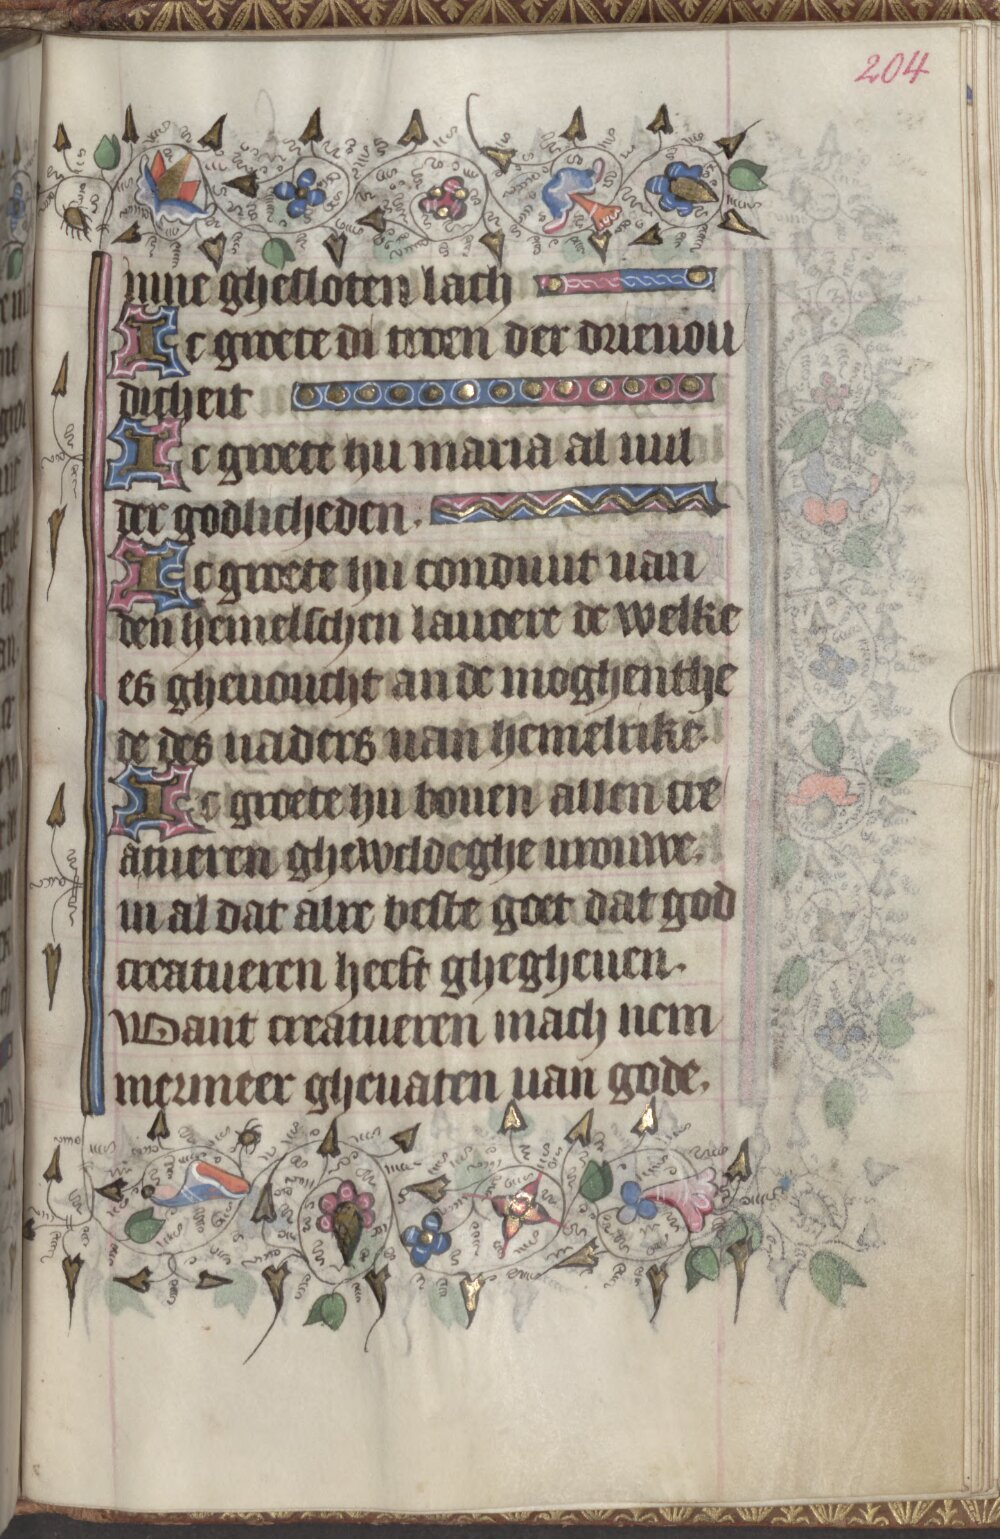 204
inne ghesloten lach
Ic groete di troen der drieuou
dicheit
Ic groete hu maria al uul
der godlicheden.
Ic groete hu conduut uan
den hemelschen lauoere de welke
es gheuoucht an de moghenthe
de des uaders uan hemelrike.
Ic groete hu bouen allen cre
atueren gheweldeghe urouwe.
in al dat alre beste goet dat god
creatueren heeft ghegheuen.
Want creatueren mach nem
mermeer gheuaten uan gode.